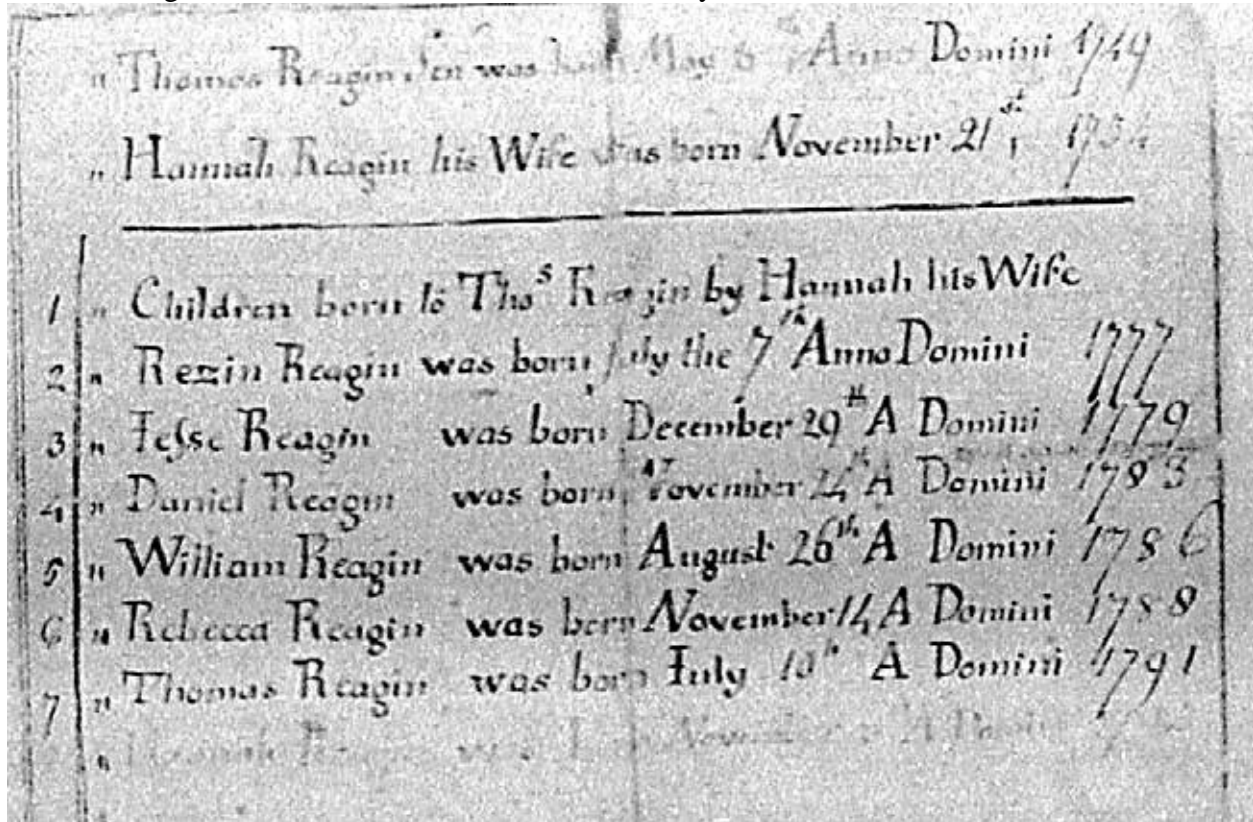 " Thomas Reagin Sen was born May Anno Domini 1749
" Hannah Reagin his Wife was born November 21st, 1754
1 " Children born to Thos Reagin by Hannah his Wife
2 " Rezin Reagin was born July the 7th Anno Domini 1777
3 " Jesse Reagin was born December 29th A Domini 1779
4 " Daniel Reagin was born November 14th A Domini 1783
5 " William Reagin was born August 26th A Domini 1786
6 " Rebecca Reagin was born November 14 A Domini 1788
7 " Thomas Reagin was born July 10th A Domini 1791
" Hannah Reagin was November A Domini